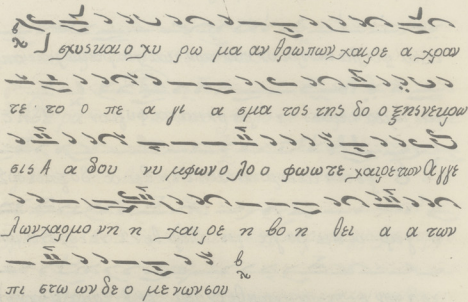 Ισχυς και ο χυ ρω μα αν θρωπων χαιρε α χραν
τε το ο πε α γι α σμα τος της δο ο ξης νε κρω
σις Α α δου νυ μφων ο λο ο φωω τε χαιρε των Αγγε
λων χαρμο νη η χαιρε η βο η θει α α των
πι στω ων δε ο με νων σου